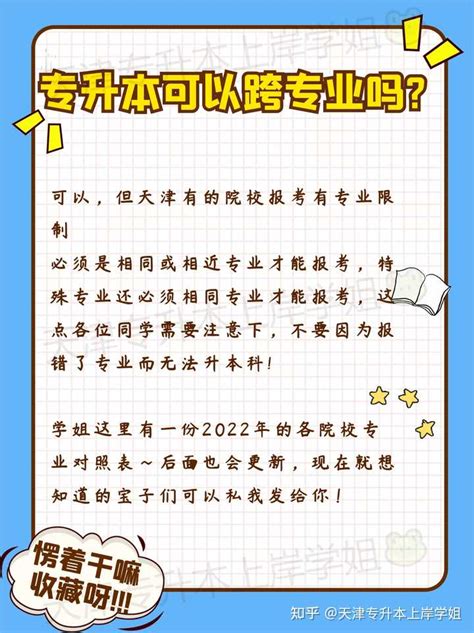 天津专升本上岸学姐
专升本可以跨专业吗?
可以，但天津有的院校报考有专业限
制
必须是相同或相近专业才能报考，特
殊专业还必须相同专业才能报考，这
点各位同学需要注意下，不要因为报
错了专业而无法升本科！
学姐这里有一份2022年的各院校专
业对照表~后面也会更新，现在就想
知道的宝子们可以私我发给你！
愣着干嘛
收藏呀!!!
天津专升本上岸学姐
知乎 @天津专升本上岸学姐